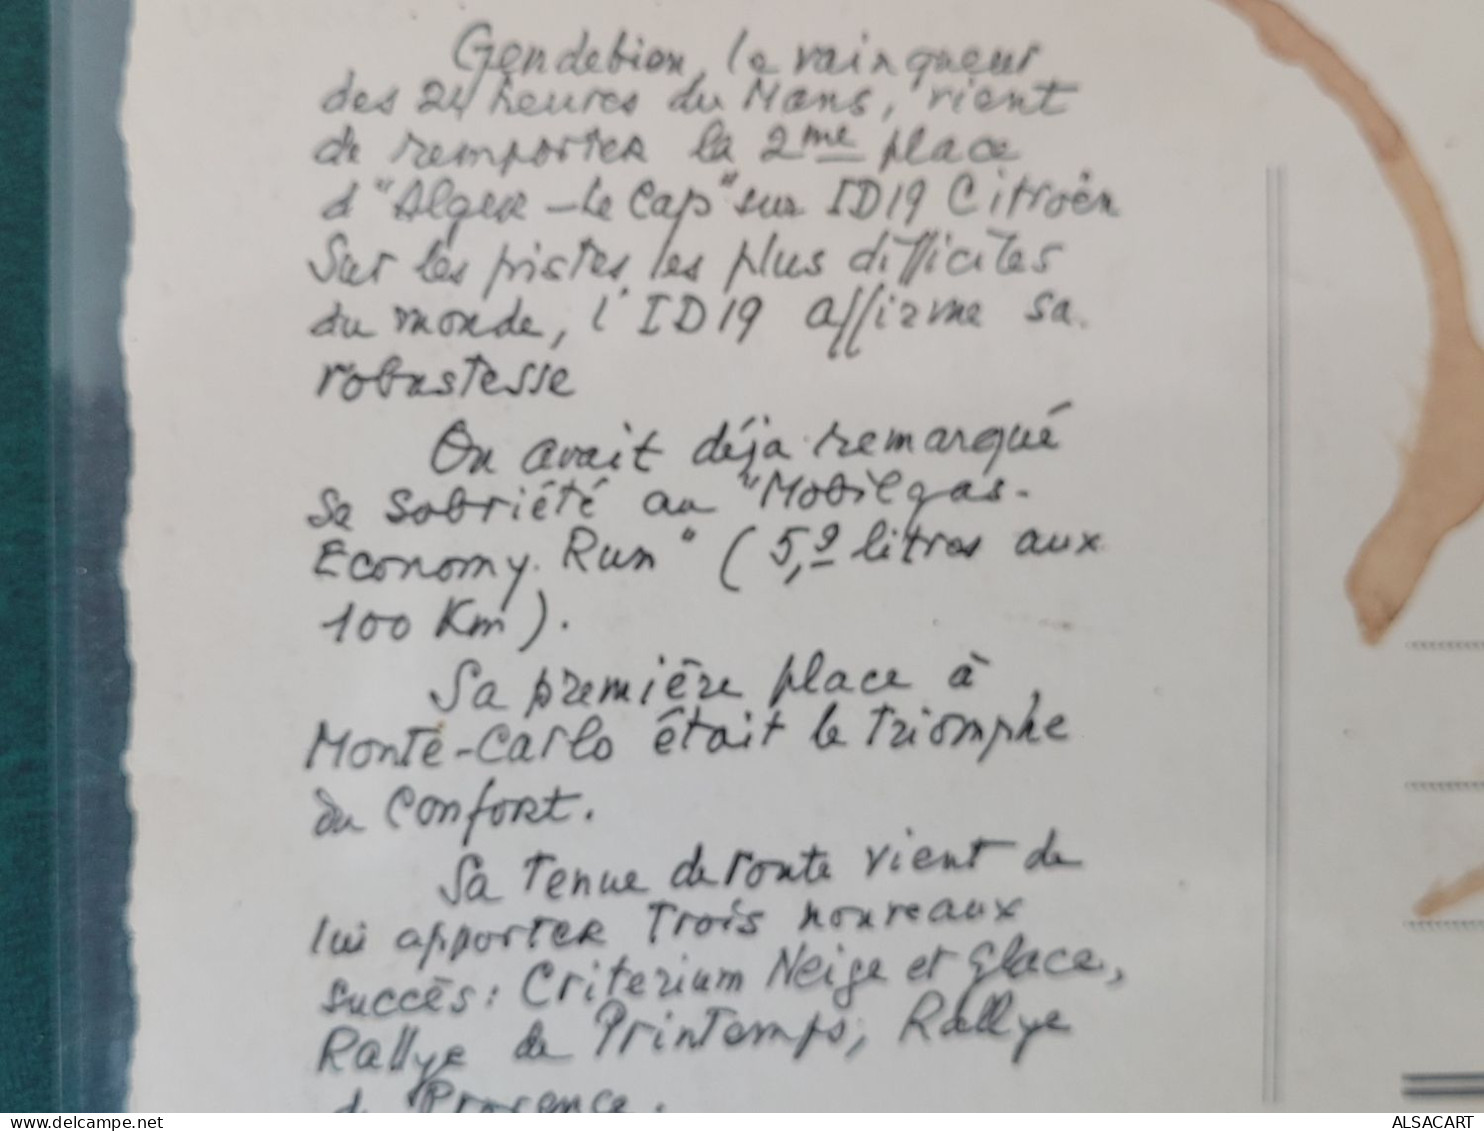 Gendebien, le vainqueur
des 24 heures du Mans, vient
de remporter la 2me place
d'"Alger-Le Cap" sur ID19 Citroën
Sur les pistes les plus difficiles
du monde, l'ID19 affirme sa
robustesse
On avait déja remarqué
sa sobriété au "Mobilgas-
Economy. Run" (5,9 litres aux
100 Km).
Sa première place à
Monte-Carlo était le triomphe
du Confort.
Sa tenue de route vient de
lui apporter trois nouveaux
succès: Criterium Neige et Glace,
Rallye de Printemps, Rallye
de Provence.
ALSACART